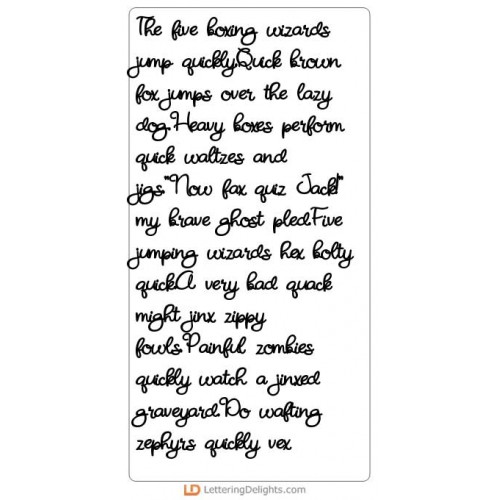 The five boxing wizards
jump quickly.Quick brown
fox jumps over the lazy
dog.Heavy boxes perform
quick waltzes and
jigs."Now fax quiz Jack!"
my brave ghost pled.Five
jumping wizards hex bolty
quick.A very bad quack
might jinx zippy
fowls.Painful zombies
quickly watch a jinxed
graveyard.Do wafting
zephyrs quickly vex
LD LetteringDelights.com